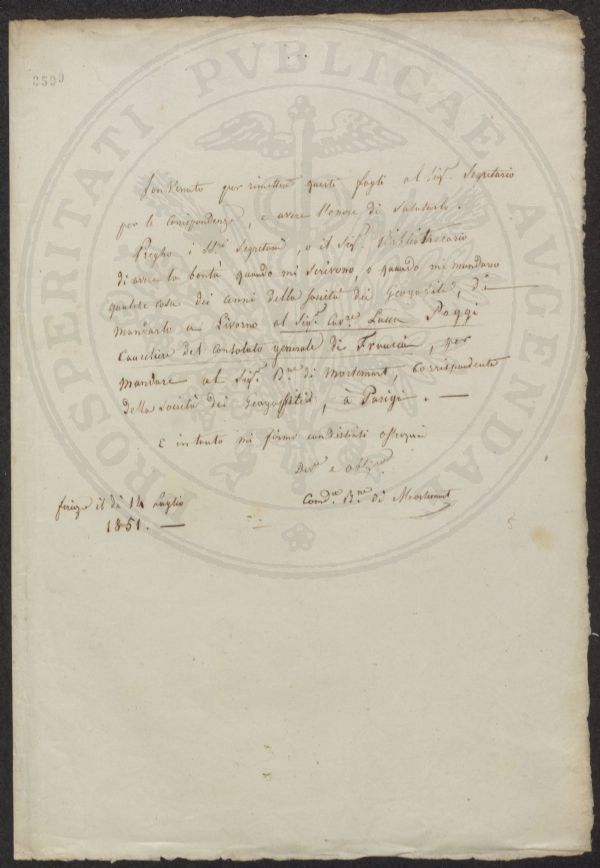 3599
PROSPERITATI PVBLICAE AVGENDAE
Son Venuto per rimettere questi fogli al Sig.r Segretario
per le Corrispondenze, e avere l'onore di salutarlo.
Pregho i SS.ri Segretari, o il Sig.r Bibliotecario
di avere la bontà quando mi scrivono, o quando mi mandano
qualche cosa dei anni della società dei Georgofili, di
mandarlo a Livorno al Sig.r Cav.re Lucca Paggi
Canceliere del Consolato generale di Francia, per
mandare al Sig.r B.ne di Mortemart, Corrispondente
della società dei Georgofili, à Parigi. —
E intanto mi firmo con distinti ossequi
Dev.mo e obb.mo
Com.re B.ne di Mortemart
firenze il di 14 Luglio
1851. —